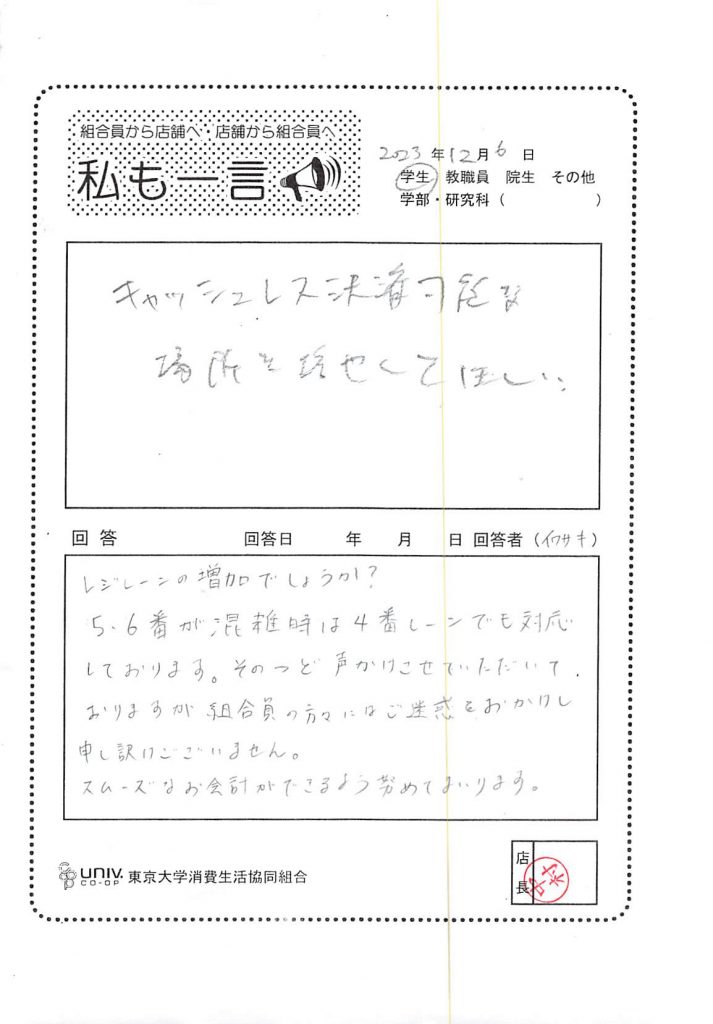 組合員から店舗へ・店舗から組合員へ
私も一言
2023年12月6日
学生 教職員 院生 その他
学部・研究科（ ）
キャッシュレス決済可能な
場所を増やしてほしい。
回答 回答日 年 月 日 回答者（イワサキ）
レジレーンの増加でしょうか？
5・6番が混雑時は4番レーンでも対応
しております。そのつど声かけさせていただいて
おりますが組合員の方々にはご迷惑をおかけし
申し訳けございません。
スムーズなお会計ができるよう努めてまいります。
UNIV. CO-OP 東京大学消費生活協同組合
店長